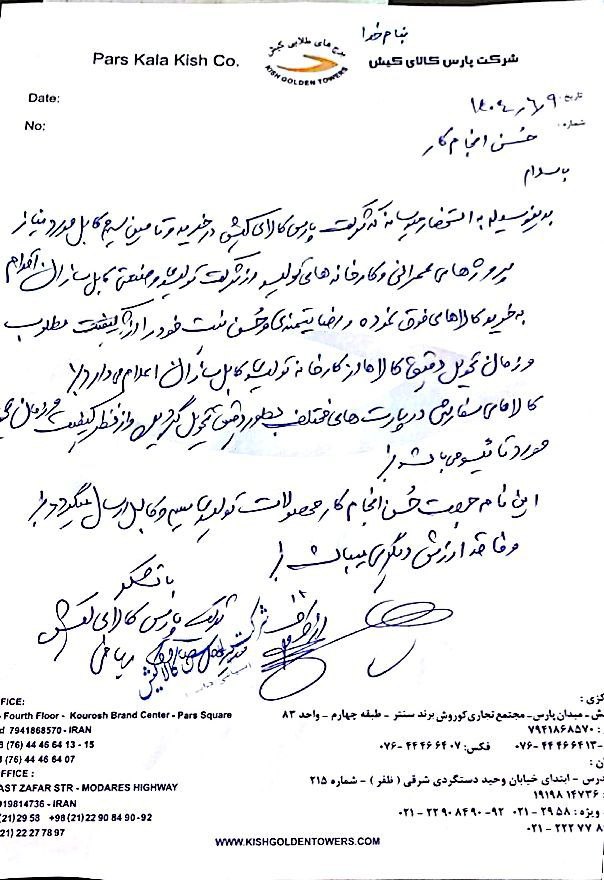 بنام خدا
Pars Kala Kish Co.
برج های طلایی کیش
KISH GOLDEN TOWERS
شرکت پارس کالای کیش
Date:
تاریخ: ۱۴۰۴/۶/۹
No:
شماره:
حُسن انجام کار
با سلام
بدینوسیله به استحضار میرساند که شرکت پارس کالای کیش در خرید و تامین سیم کابل مورد نیاز
پروژهای عمرانی و کارخانه های تولیدی از شرکت تولیدی و صنعتی کابل سازان اقدام
به خرید کالاهای فوق نموده و رضایتمندی و حُسن نیت خود را از کیفیت مطلوب
و زمان تحویل دقیق کالاها از کارخانه تولیدی کابل سازان اعلام می دارد
کالاهای سفارشی در پارت های مختلف بطور دقیق تحویل گردیده و از نظر کیفیت و زمان
مورد تائید می باشد
این نامه جهت حُسن انجام کار محصولات تولیدی سیم و کابل ارسال میگردد
و فاقد ارزش دیگری میباشد
با تشکر
شرکت پارس کالای کیش
FICE:
Fourth Floor - Kourosh Brand Center - Pars Square
d 7941868570 - IRAN
(76) 44 46 64 13 - 15
(76) 44 46 64 07
OFFICE :
AST ZAFAR STR - MODARES HIGHWAY
919814736 - IRAN
(21) 29 58 +98 (21) 22 90 84 90 -92
21) 22 27 78 97
کزی :
ش - میدان پارس - مجتمع تجاری کوروش برند سنتر - طبقه چهارم - واحد ۸۳
: ۷۹۴۱۸۶۸۵۷۰
۰۷۶ - ۴۴ ۴۶ ۶۴ ۱۳- فکس: ۰۷۶ - ۴۴ ۴۶ ۶۴ ۰۷
ان :
درس - ابتدای خیابان وحید دستگردی شرقی ( ظفر ) - شماره ۲۱۵
: ۱۹۱۹۸ ۱۴۷۳۶
ویژه : ۰۲۱ - ۲۹ ۵۸ ۰۲۱ - ۲۲ ۹۰ ۸۴ ۹۰ - ۹۲
۰۲۱ - ۲۲ ۲۷ ۷۸
WWW.KISHGOLDENTOWERS.COM